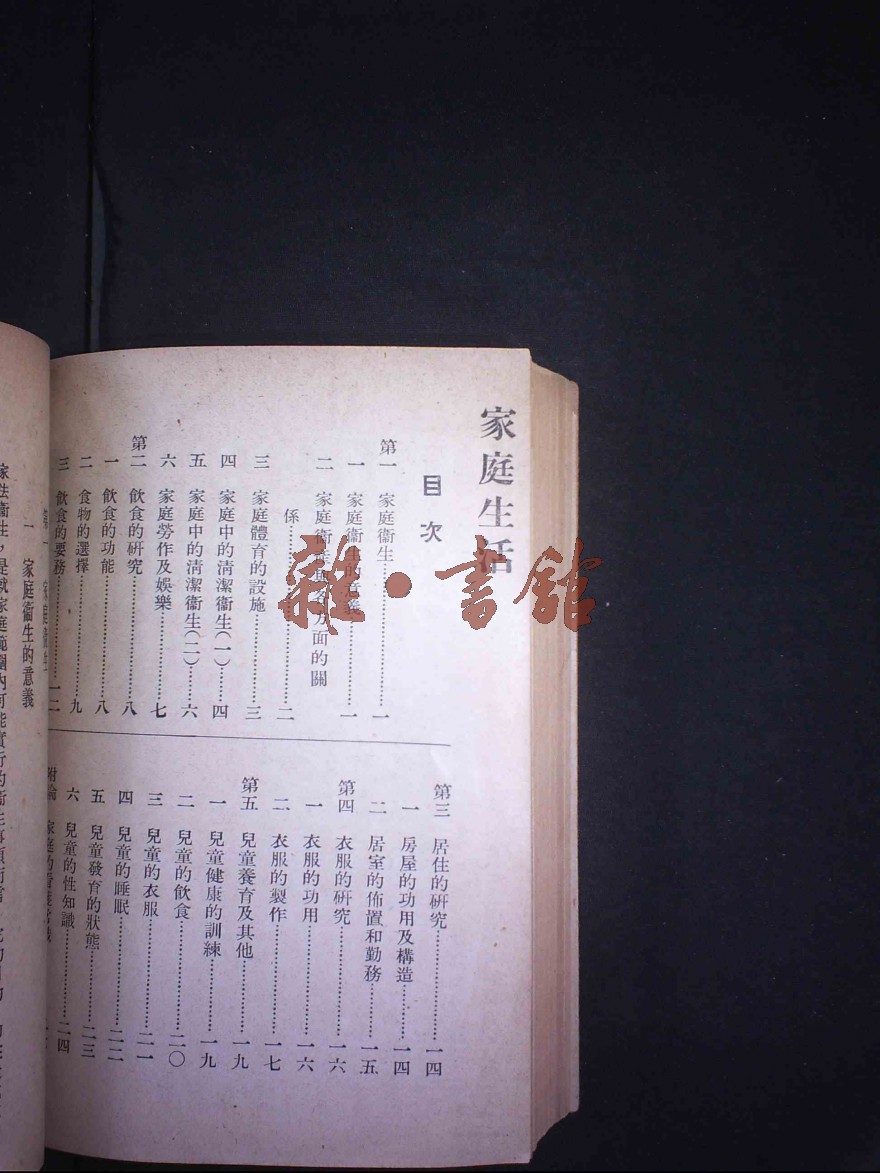 家庭生活
目次
第一 家庭衞生……一
一 家庭衞生的意義……一
二 家庭衞生與各方面的關
係……二
三 家庭體育的設施……三
四 家庭中的淸潔衞生(一)……四
五 家庭中的淸潔衞生(二)……六
六 家庭勞作及娛樂……七
第二 飮食的硏究……八
一 飮食的功能……八
二 食物的選擇……九
三 飮食的要務……一二
第三 居住的硏究……一四
一 房屋的功用及構造……一四
二 居室的佈置和勤務……一五
第四 衣服的硏究……一六
一 衣服的功用……一六
二 衣服的製作……一七
第五 兒童養育及其他……一九
一 兒童健康的訓練……一九
二 兒童的飮食……二〇
三 兒童的衣服……二一
四 兒童的睡眠……二二
五 兒童發育的狀態……二三
六 兒童的性知識……二四
附論
一 家庭衞生的意義
家庭衞生，是就家庭範圍內可能實行的衞生事項而言
雜·書館